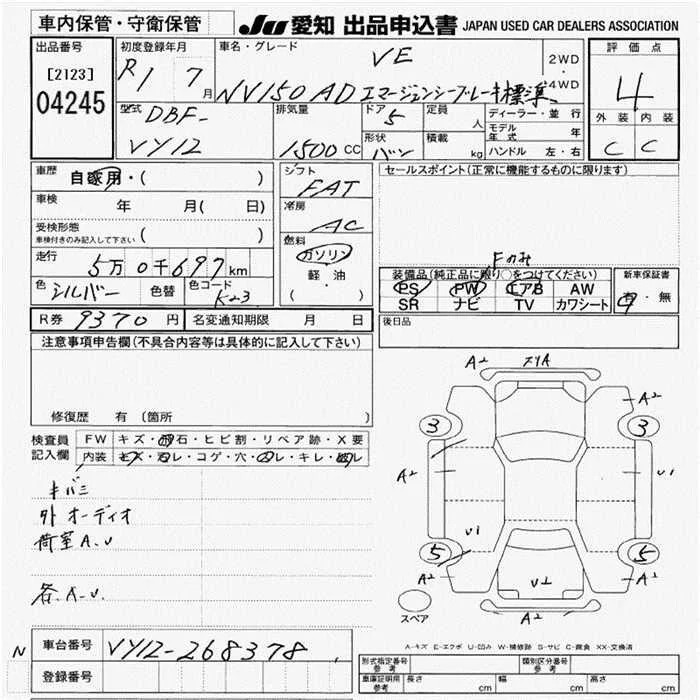 車内保管・守衛保管
JU 愛知 出品申込書 JAPAN USED CAR DEALERS ASSOCIATION
出品番号 初度登録年月 車名・グレード VE 2WD・4WD 評価点
[2123] R1 7月 NV150 AD エマージェンシーブレーキ標準 4
04245
型式 DBF- 排気量 ドア 5 定員 人 ディーラー・並行 外装 内装
VY12 1500 CC 形状 バン 積載 kg モデル年式 年 C C
ハンドル 左・右
車歴 自家用・( ) シフト FAT セールスポイント(正常に機能するものに限ります)
車検 年 月( 日) 冷房 AC
受検形態 ( )
車検付きのみ記入して下さい
燃料 ガソリン Fのみ
走行 5万0千697km 軽・油 装備品(純正品に限り○をつけてください) 新車保証書
( ) PS PW エアB AW 有・無
色 シルバー 色替 色コード K23 SR ナビ TV カワシート
R券 9370円 名変通知期限 月 日 後日品
注意事項申告欄(不具合内容等は具体的に記入して下さい)
修復歴 有 (箇所 )
検査員記入欄 FW キズ・飛石・ヒビ割・リペア跡・X要
内装 キズ・汚レ・コゲ・穴・スレ・キレ・
キバミ
外 オーディオ
荷室A.U
各A.U.
A2
A2
3
3
A2
U1
U1
5
5
A2
A2
A2
スペア
A-キズ E-エクボ U-凹み W-補修跡 S-サビ C-腐食 XX-交換済
N 車台番号 VY12-268378
登録番号
型式指定番号 参考 類別区分番号 参考
車庫証明用 参考 長さ cm 幅 cm 高さ cm